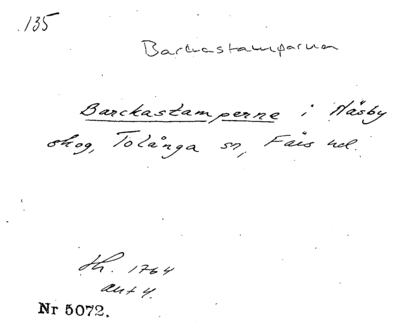 135
Barckastamparna
Barckastamperne i Näsby
skog, Tolånga sn, Färs hd.
th. 1764
ant 4.
Nr 5072.